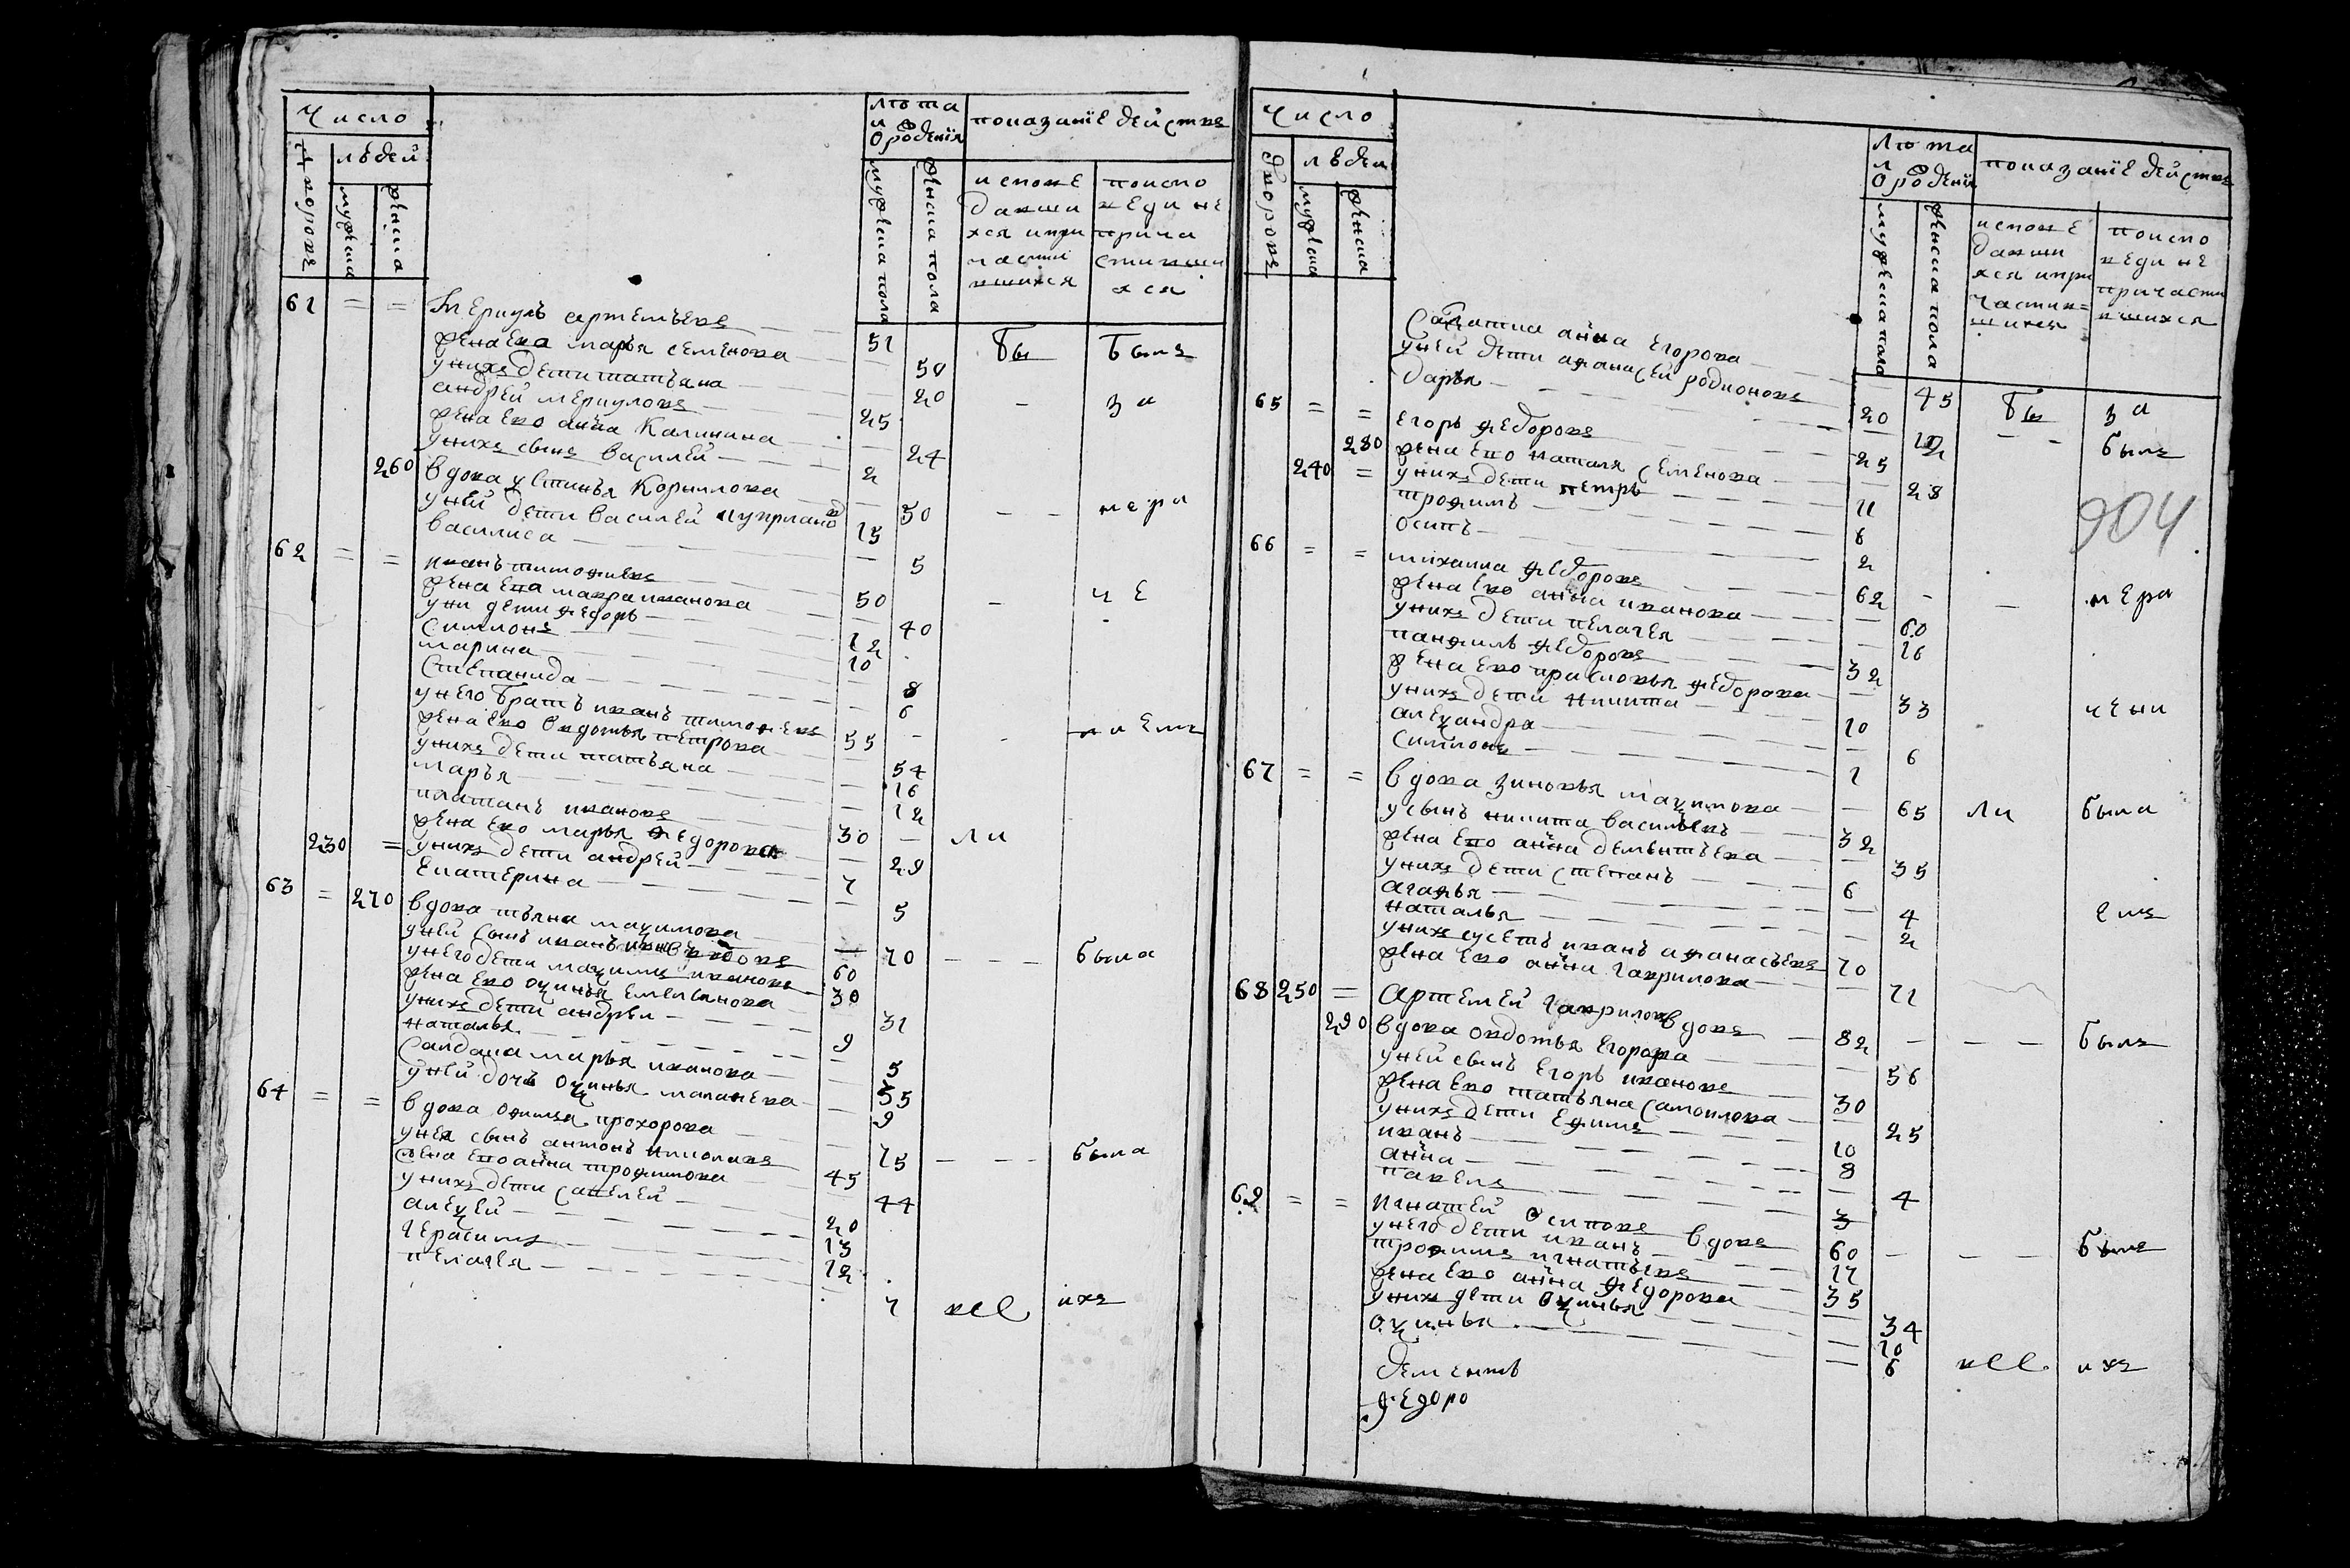 Число
лѣта
и
ѿ рожденїя
показанїе действъ
дворовъ
людей
мужеска
женска
мужеска пола
женска пола
исповедавшихся и причастившихся
поисповеди не причастившихся
61 = = Меркулъ артемьевъ — 51 бы былъ
жена ева марья семенова — 50
унихъ дети татьяна — 20 — за
андрей меркуловъ — 25
жена ево анна Калинина — 24
унихъ сынъ василей — 2
260 вдова устинья Корнилова — 50 — — мера
уней дети василей куприанов 15
василиса — 5
62 = = иванъ тимофиевъ — 50 — че
жена ева макра иванова — 40
уни дети федоръ — 12
симионъ — 10
марина — 8
степанида — 6
унего братъ иванъ тимофиевъ 55 — ниемъ
жена ево овдотья петрова — 54
унихъ дети татьяна — 16
марья — 12
платанъ ивановъ — 30 — ли
жена ево марья федорова — 29
230 = унихъ дети андрей — 7
екатерина — 5
63 = 270 вдова тьяна маѯимова — 70 — — — была
уней сынъ иванъ вдовъ 60
унего дети маѯимъ ивановъ 30
жена ево оѯинья емельянова — 31
унихъ дети андреи — 9
наталья — 5
салдатка марья иванова — 35
уней дочь оѯинья маланева — 9
64 = = вдова офимья прохорова — 75 — — — была
унея сынъ антонъ николаевъ 45
жена ево анна трофимова — 44
унихъ дети савелей — 20
алеѯей — 13
герасимъ — 12
пелагея — 7 всѣ ихъ
Число
лѣта
и
ѿ рожденїя
показанїе действъ
дворовъ
людеи
мужеска
женска
мужеска пола
женска пола
исповедавшихся и причастившихся
поисповеди не причастившихся
салдатка анна егорова — 45 бы за
уней дети афанасей родионовъ 20
дарья — 12
65 = = егоръ федоровъ — 25 — — былъ
280 жена ево наталя семенова — 28
240 = унихъ дети петръ — 11
трофимъ — 8
осипъ — 2
904
66 = = михаила федоровъ — 62 — — мера
жена ево анна иванова — 60
унихъ дети пелагея — 16
панфилъ федоровъ — 32
жена ево прасковья федорова — 33 чени
унихъ дети никита — 10
алеѯандра — 6
симионъ — 1
67 = = вдова зиновья маѯимова — 65 ли была
у сынъ никита васильевъ — 32
жена ево анна дементьева — 35
унихъ дети степанъ — 6
агафья — 4 емъ
наталья — 2
унихъ сусетъ иванъ афанасьевъ 70
жена ево анна гаврилова — 71
68 250 = Артемей гавриловъ вдовъ — 82 — — — былъ
290 вдова овдотья егорова — 56
уней сынъ егоръ ивановъ — 30
жена ево татьяна самоилова — 25
унихъ дети ефимъ — 10
иванъ — 8
анна — 4
павелъ — 3
69 = = игнатей осиповъ вдовъ 60 — — былъ
унего дети иванъ — 17
трофимъ игнатьевъ — 35
жена ево анна федорова — 34
унихъ дети оѯинья — 10
оѯинья — 6 всѣ ихъ
дементъ
федоро